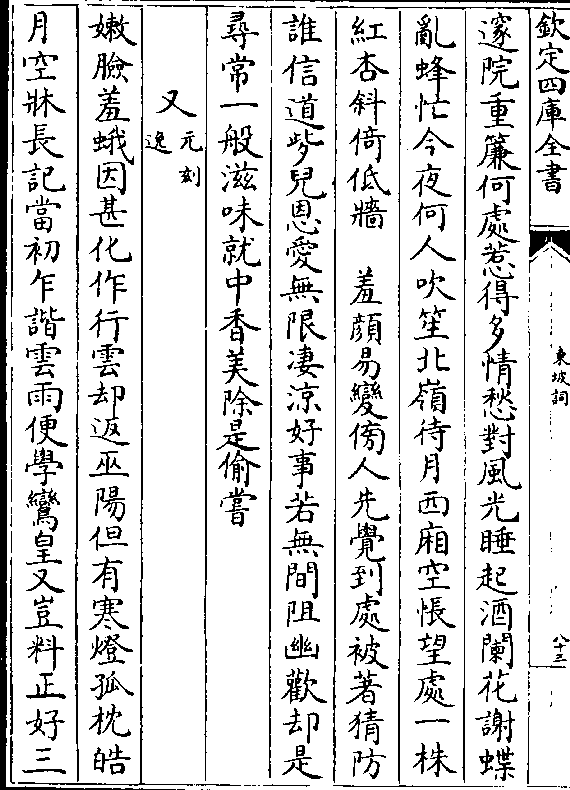 欽定四庫全書
東坡詞
八十三
邃院重簾何處惹得多情愁對風光睡起酒闌花謝蝶
亂蜂忙今夜何人吹笙北嶺待月西廂空悵望處一株
紅杏斜倚低牆　羞顏易變傍人先覺到處被著猜防
誰信道些兒恩愛無限凄涼好事若無間阻幽歡却是
尋常一般滋味就中香美除是偷嘗
又元刻逸
嫩臉羞蛾因甚化作行雲却返巫陽但有寒燈孤枕皓
月空牀長記當初乍諧雲雨便學鸞皇又豈料正好三